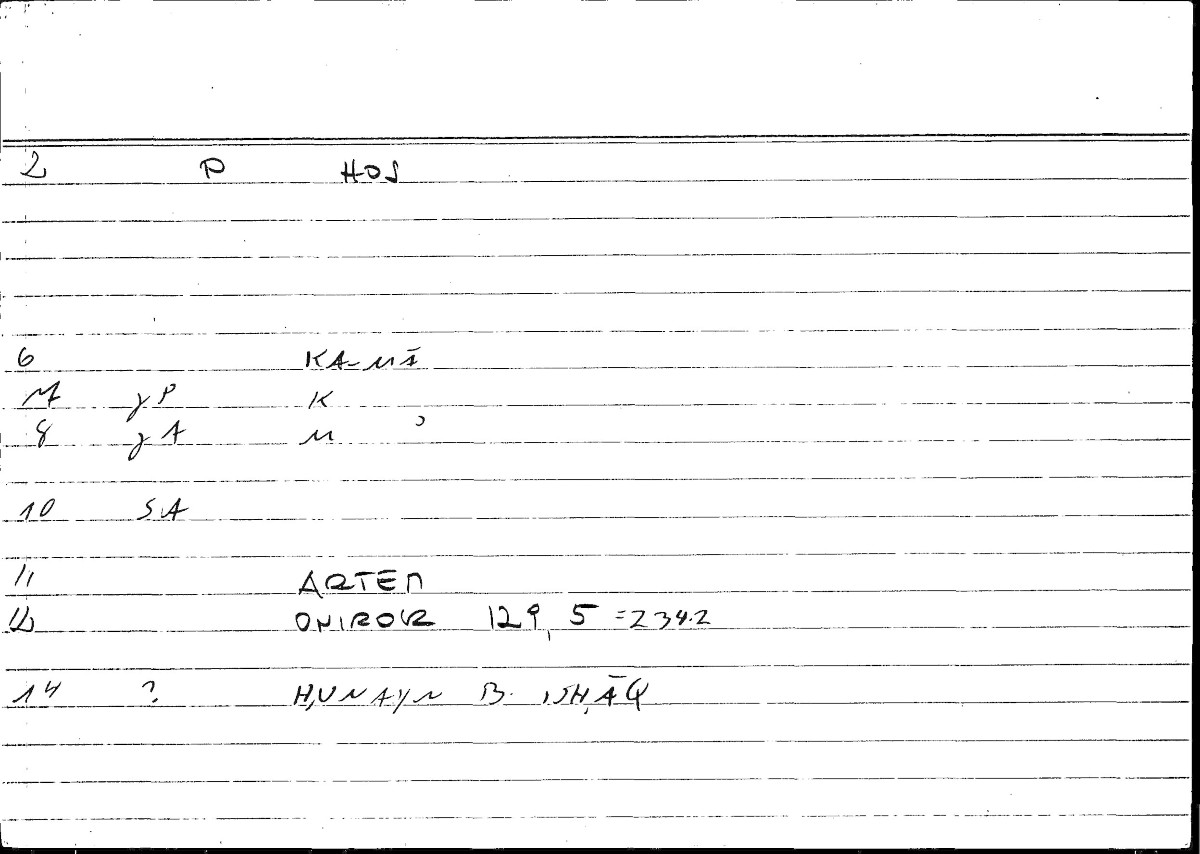 2 P HOS
6 KA-MĀ
M γP K
8 γA M ʾ
10 SA
11 ARTEM
12 ONIROK 129, 5 = 234.2
14 ? ḤUNAYN B. ISḤĀQ